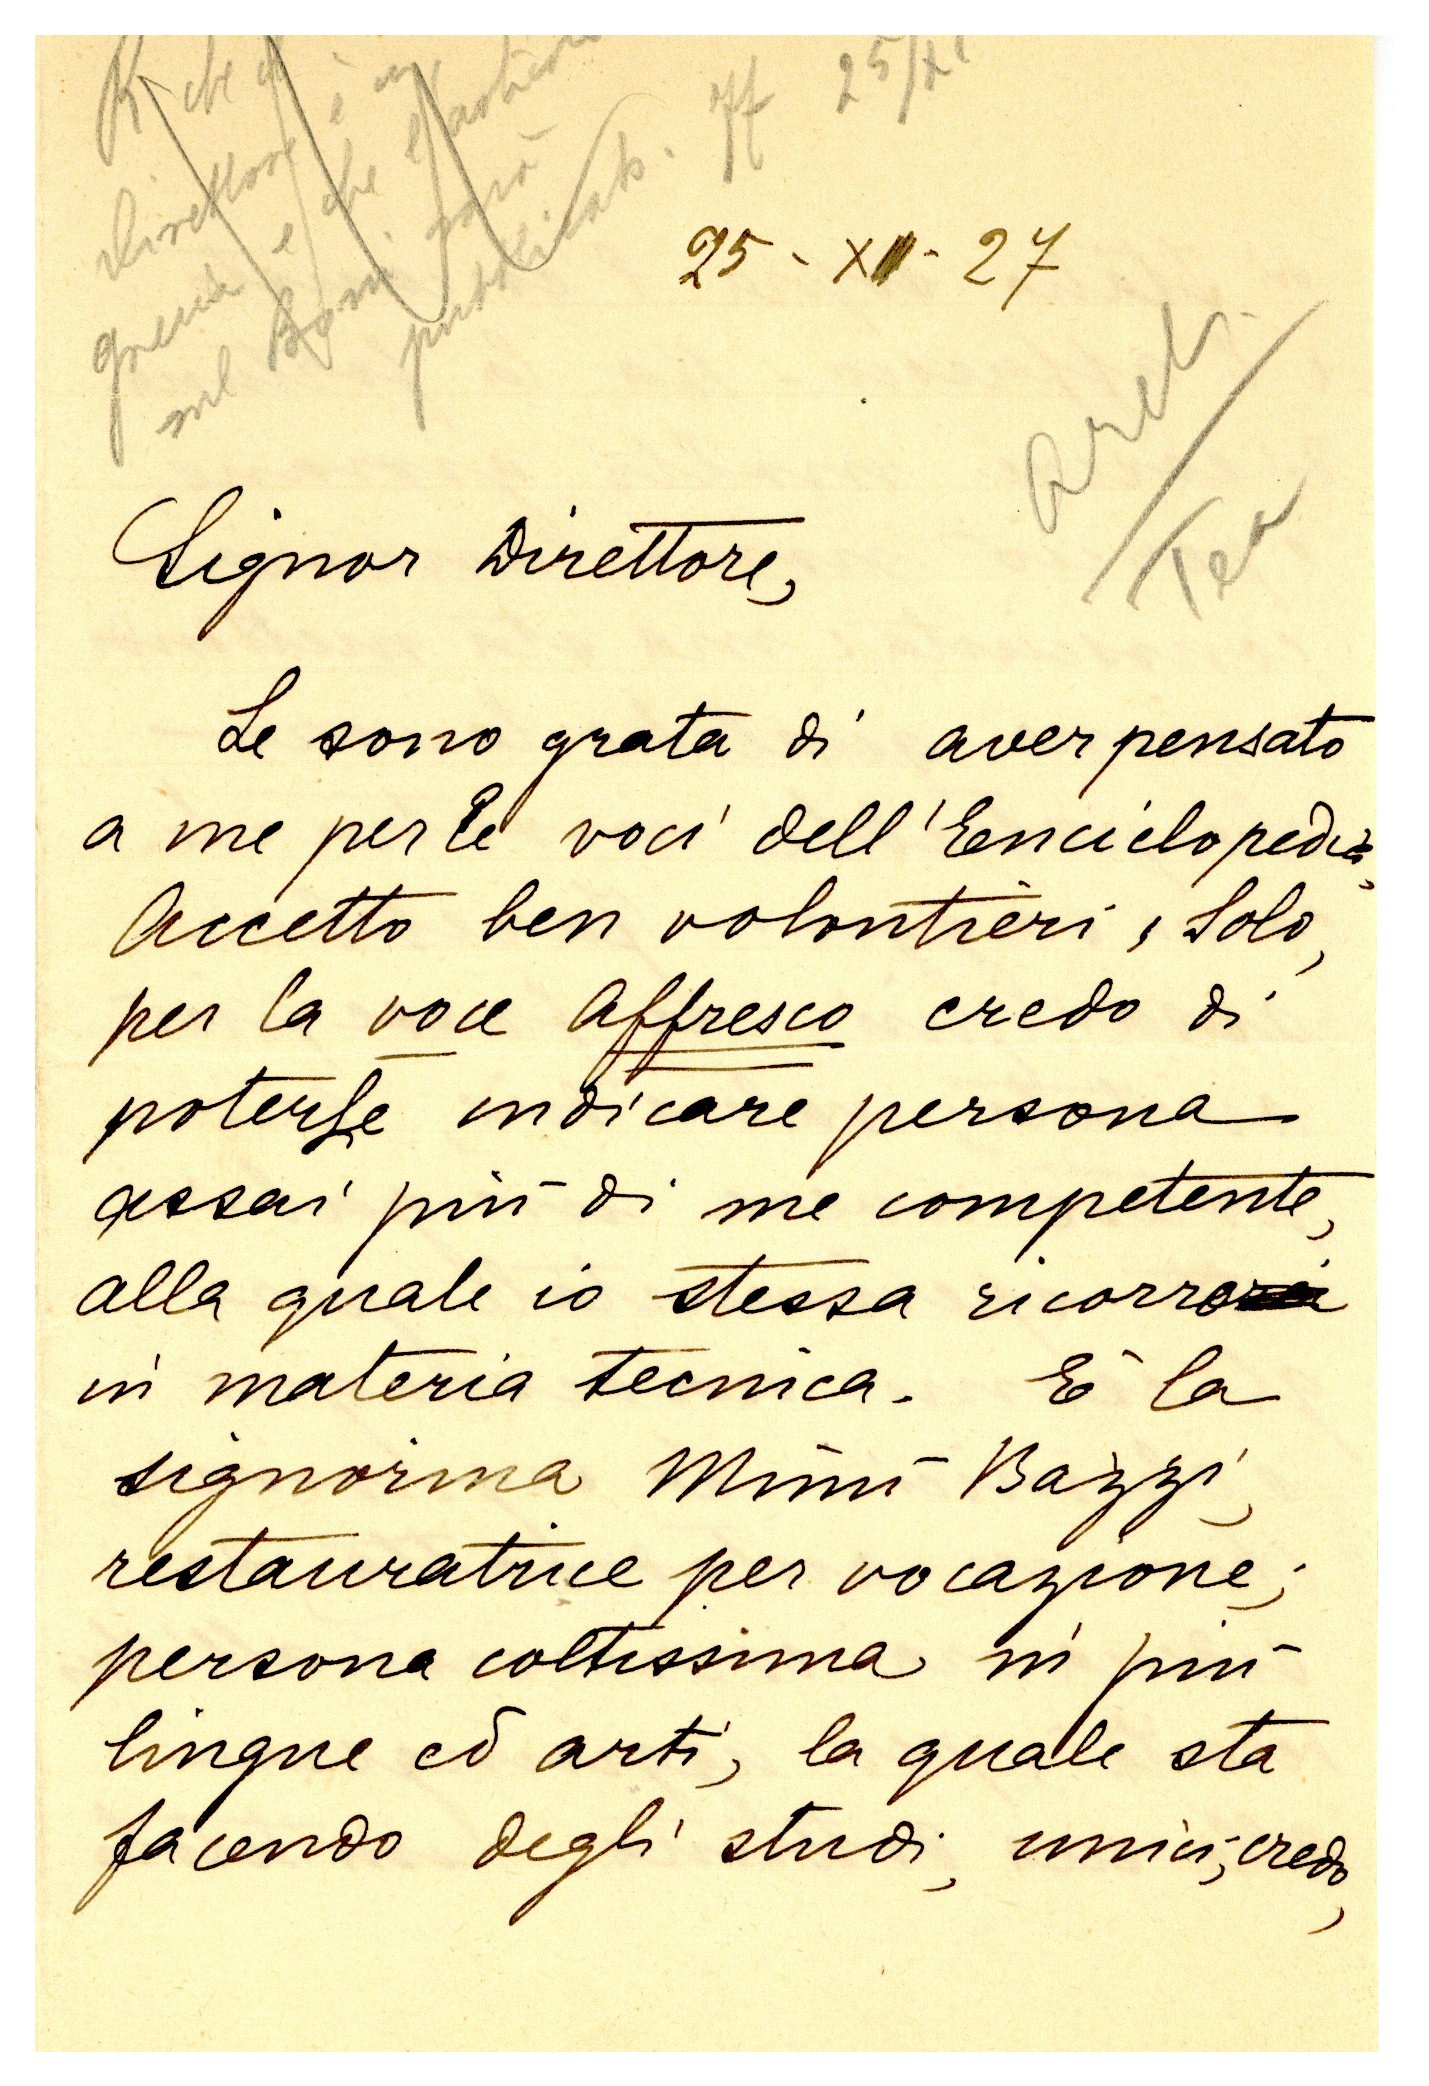 R. che il
Direttore è in
Grecia e che l'articolo
sul Boni sarà
pubblicato. ff 25/XI
25 - XI - 27
Aret.
Tea
Signor Direttore,
Le sono grata di aver pensato
a me per le voci dell'Enciclopedia,
Accetto ben volontieri, Solo,
per la voce Affresco credo di
poterLe indicare persona
assai più di me competente,
alla quale io stessa ricorro
in materia tecnica. È la
signorina Mimì Bazzi,
restauratrice per vocazione;
persona coltissima in più
lingue ed arti, la quale sta
facendo degli studi, unici, credo,